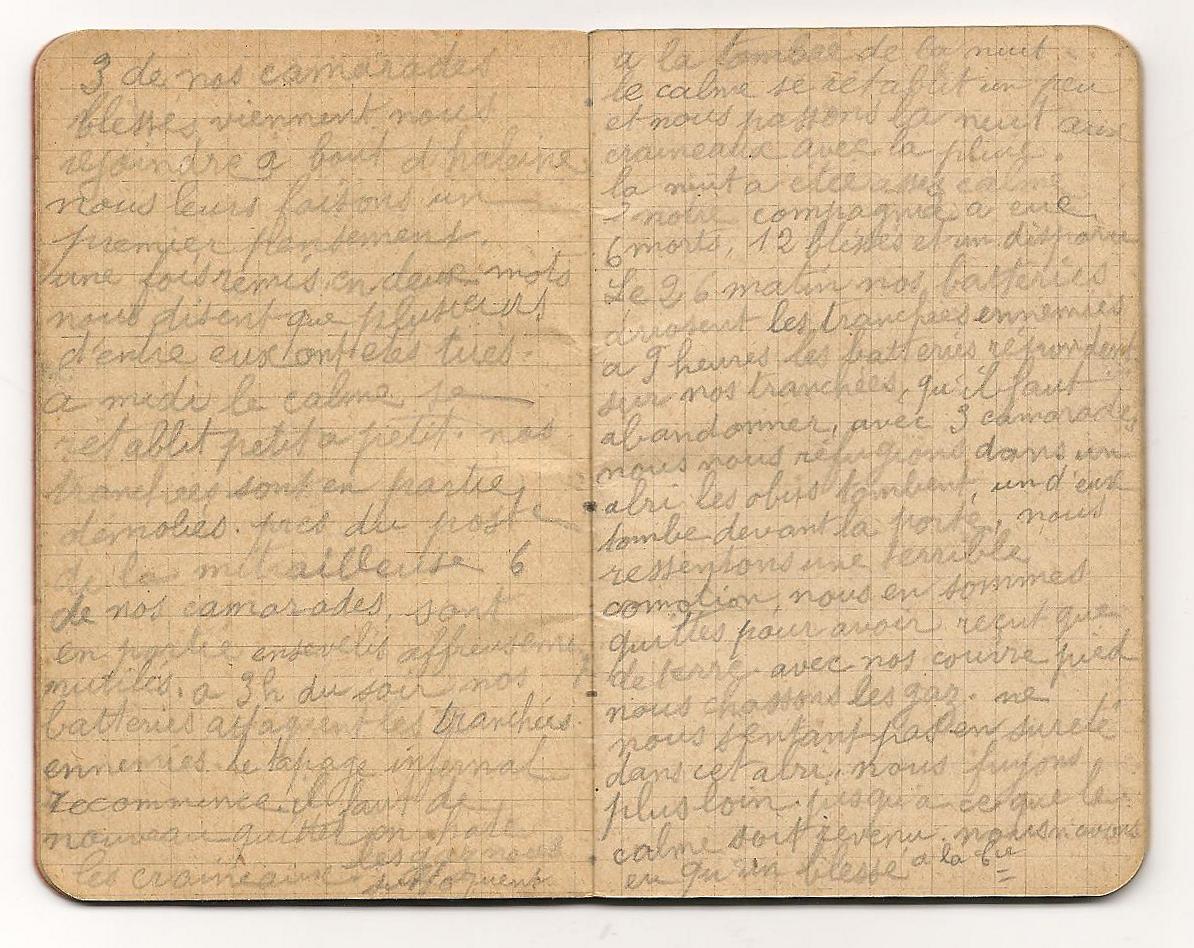 3 de nos camarades
blessés, viennent nous
rejoindre a bout d'haleine
nous leurs faisons un
premier pansement.
une fois remis, en deux mots
nous disent que plusieurs
d'entre eux ont etes tués.
a midi le calme se
retablit petit a petit. nos
tranchees sont en partie
demolies. près du poste
de la mitrailleuse 6
de nos camarades, sont
en partie ensevelis affreusement
mutilés. a 3h du soir nos
batteries attaquent les tranchées
ennemies. le tapage infernal
recommence. il faut de
nouveau quitter en hate
les craineaux. les gaz nous
suffoquent.
a la tombée de la nuit
le calme se rétablit un peu
et nous passons la nuit aux
craineaux avec la pluie.
la nuit a etée assez calme
notre compagnie a eue
6 morts, 12 blessés et un disparu
Le 26 matin nos batteries
arrosent les tranchées ennemies
a 9 heures les batteries répondent
sur nos tranchées, qu'il faut
abandonner, avec 3 camarades,
nous nous réfugions dans un
abri les obus tombent, un d'eux
tombe devant la porte, nous
ressentons une terrible
comotion, nous en sommes
quittes pour avoir reçut que
de terre. avec nos couvre pied
nous chassons les gaz. ne
nous sentant pas en sureté
dans cet abri, nous fuyons
plus loin jusqu'a ce que le
calme soit revenu. nous n'avons
eu qu'un blessé a la 6ie